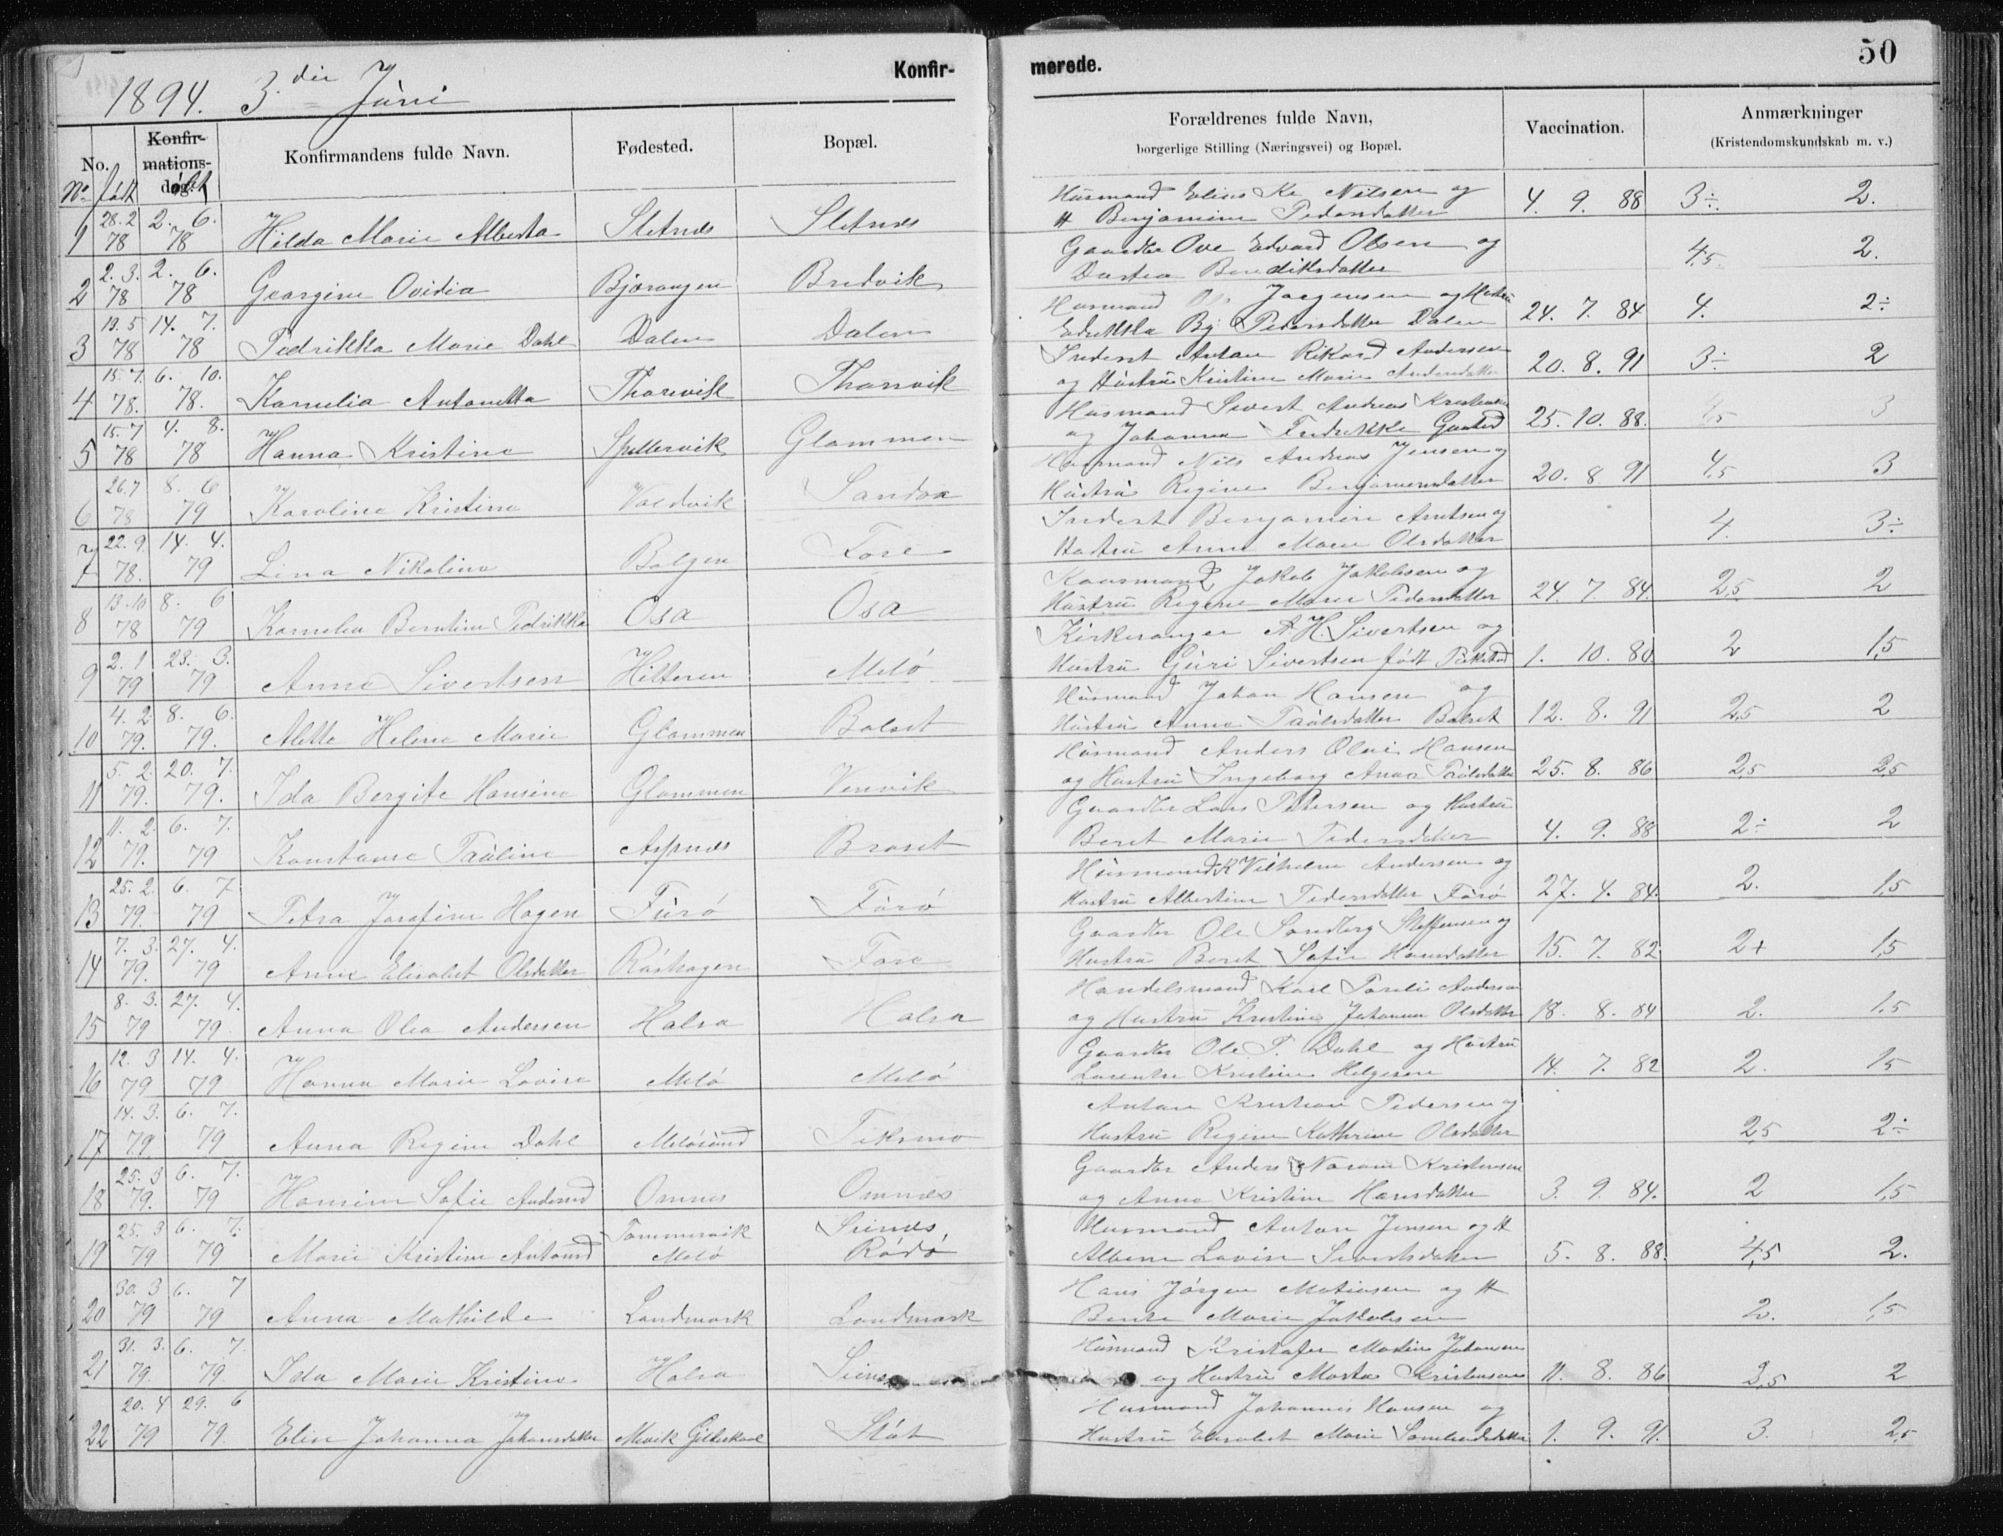 1894. 3.die Juni
Konfir-
merede.
50
No. Konfir-mations-dag. Konfirmandens fulde Navn. Fødested. Bopæl. Forældrenes fulde Navn, borgerlige Stilling (Næringsvei) og Bopæl. Vaccination. Anmærkninger (Kristendomskundskab m. v.)
No født døbt
1 28.2 78 2. 6. 78 Hilda Marie Alberta Sletnæs Sletnæs Husmand Elias Kr Nilsen og H Benjamine Pedersdatter 4. 9. 88 3÷. 2.
2 2.3. 78 2. 6. 78 Georgine Ovidia Bjærangen Bredvik Gaardbr Ove Edvard Olsen og Dortea Benediktsdatter 4,5 2.
3 13.5 78 14. 7. 78 Pedrikka Marie Dahl Dalen Dalen Husmand Ole Jørgensen og Hustru Edrikka Bj Pedersdatter Dalen 24. 7. 84 4. 2÷
4 15.7. 78. 6. 10. 78. Kornelia Antonetta Thorvik Thorvik Inderst Anton Rikard Andersen og Hustru Kristine Marie Andersdatter 20. 8. 91 3÷ 2
5 15.7 78 4. 8. 78 Hanna Kristine Spillervik Glommen Husmand Sivert Andreas og Johanna Fredrikke 25. 10. 88. 4,5 3
6 26.7 78 8. 6 79 Karoline Kristine Valdvik Sandaa Husmand Nils Andreas Jensen og Hustru Regine Benjaminsdatter 20. 8 91 4,5 3
7 22.9. 78. 14. 4. 79 Lina Nikoline Bolgen Fore Inderst Benjamin Arntsen og Hustru Anne Marie Olsdatter 4. 3÷
8 13.10 78 8. 6 79 Kornelia Berntine Pedrikka Osa Osa Kaarmand Jakob Jakobsen og Hustru Regine Marie Pedersdatter 24. 7. 84. 2,5 2
9 2. 1 79 23. 3. 79 Anna Sivertsen Hitteren Melö Kirkesanger A H. Sivertsen og Hustru Guri Sivertsen født 1. 10. 80. 2 1,5
10 4. 2. 79. 8. 6. 79. Alette Helene Marie Glommen Bolset Husmand Johan Hansen og Hustru Anna Paulsdatter Bolset 12. 8. 91 2,5 2
11 5. 2. 79. 20. 7. 79. Ida Bergite Hansine Glommen Venvik Husmand Anders Olai Hansen og Hustru Ingeborg Anna Paulsdatter 25. 8. 86 2,5 2,5
12 11. 2. 79. 6. 7. 79 Konstanse Pauline Aspnæs Braset Gaardbr Lars Petersen og Hustru Beret Marie Pedersdatter 4. 9. 88 2÷ 2
13 25. 2. 79. 6. 7. 79 Petra Josefine Hagen Furö Furö Husmand K Vilhelm Andersen og Hustru Albertine Pedersdatter Furö 27. 4. 84. 2. 1,5
14 7. 3. 79. 27. 4. 79 Anne Elisabet Olsdatter Röshagen Fore Gaardbr Ole Sandberg Steffensen og Hustru Beret Sofie Hansdatter 15. 7. 82 2+ 1,5
15 8. 3. 79 27. 4. 79. Anna Olea Andersen Halsa Halsa Handelsmand Karl Pareli Andersen og Hustru Kristine Johanna Olsdatter 18. 8. 84 2. 1,5
16 12. 3 79 14. 4. 79 Hanna Marie Lovise Melö Melö Gaardbr Ole P. Dahl og Hustru Laurentse Kristine Helgesen 14. 7. 82 2. 15
17 14. 3. 79 6. 7. 79 Anna Regine Dahl Melösund Teksmo Anton Kristian Pedersen og Hustru Regine Kathrine Olsdatter 2,5 2÷
18 25. 3 79. 6. 7. 79 Hansine Sofie Andersd Omnes Omnæs Gaardbr Anders Kristensen og Anna Kristine Hansdatter 3. 9. 84. 2 1,5
19 25. 3 79 6. 7. 79 Marie Kristine Antonsd Tommervik Melö Seines Rödö Husmand Anton Jensen og H Albine Lovise Sivertsdatter 5. 8. 88. 4,5 2.
20 30. 3 79 6. 7 79 Anna Mathilde Landmark Landmark Hans Jörgen Matiasen og H Benta Marie Jakobsen 2. 1,5
21 31. 3. 79. 6. 7. 79. Ida Marie Kristine Halsa Seines Husmand Kristofer Martin Johansen og Hustru Marta Kristensen 11. 8. 86 3,5 2
22 20. 4 79 29. 6 79. Elin Johanna Johansdatter Mevik Gilleskaal Stöt Husmand Johannes Hansen og Hustru Elisabet Marie 1. 9. 91. 3. 2,5